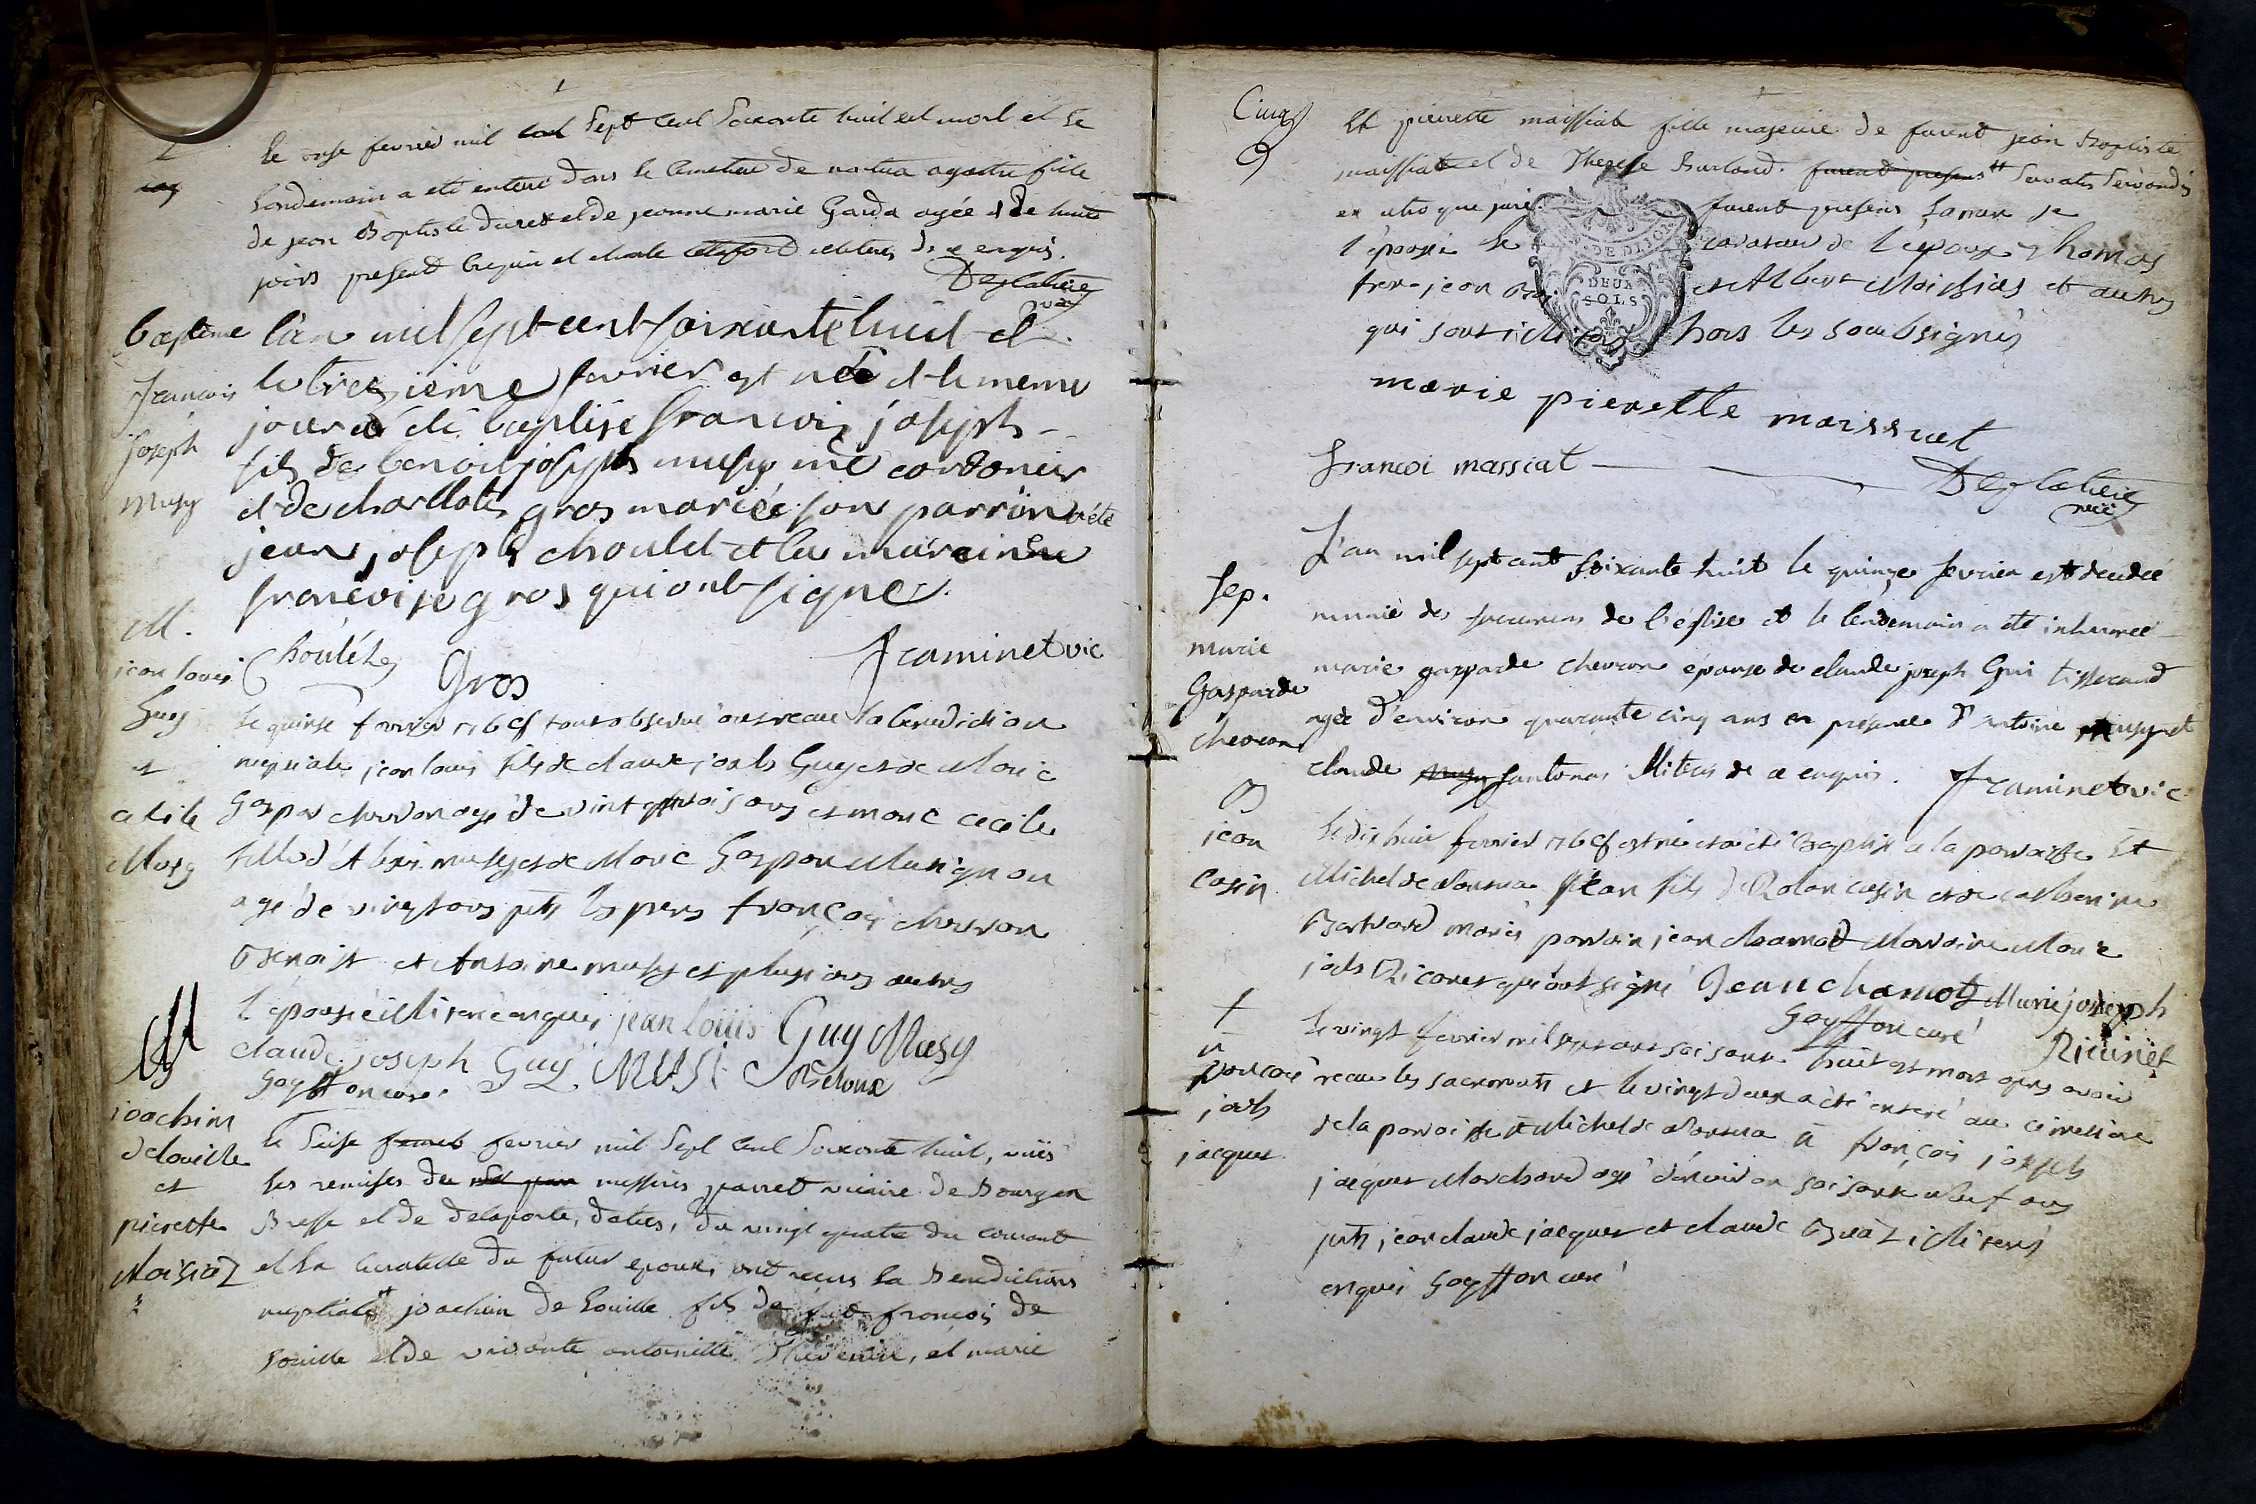 Le onze fevrier mil sept cent soixante huit est mort et le
lendemain a eté enterré dans le cimetiere de nantua agathe fille
de jean Baptiste duret et de jeanne marie Garda agée de huit
jours present et charle illiteres de ce enquis.
Desplatiere
vic
baptême
françois
joseph
musy
l'an mil sept cent soixante huit et
le treizieme fevrier est né et le meme
jour a été baptise francois joseph
fils de benoit joseph musy me cordonier
et de charllote gros mariée son parrin a été
jean joseph choulet et la maraine
francoise gros qui ont signe.
Choulet Gros Jcaminet vic
M.
jean louis
Guy
et
cecile
Musy
le quinse fevrier 1768 tout observé ont recu la benediction
nuptiale jean louis fils de claude josph Guy et de Marie
Gaspar chevron agé de vint trois ans et marie cecile
fille d'Alexi musy et de Marie Gaspar Marignon
agé de vingt ans pnts les peres françois chevron
Benoist et Antoine musy et plusieurs autres
l'épouse illiteré enquis jean louis Guy Musy
claude joseph Guy MUSI
Goyffon curé
M
joachim
delouille
et
pierette
Maisiaz
le seise fevrier mil sept cent soixante huit, vües
les remises de messires jparret vicaire de Bourg en
Bresse et de delaporte, datées, du vingt quatre du courant
et la curatelle du futur epoux, ont recus la Benediction
nuptiale joachim de Louille fils de françois de
Louille et de vivante antoinette Thevenin, et marie
Cinq
Et pierrette maissiat fille majeure de furent jean Baptiste
maissiat et de Therese Burland. furent presens servatis servandis
ex utroque jure furent presens
l'épouse le curateur de l'époux Thomas
frere jean et Albert Maissias et autres
qui sont illiteres hors les soubsignés
marie pierette maissiat
francoi massiat Desplatiere
vic
Sep.
marie
Gasparde
chevron
L'an mil sept cent soixante huit le quinze fevrier est decedée
munie des sacremens de l'eglise et le lendemain a été inhumée
marie gasparde chevron épouse de claude joseph Gui tisserand
agée d'environ quarante cinq ans en presence d'antoine musy et
claude santonas illiteres de ce enquis. Jcaminet vic.
B
jean
cosin
le dix huit fevrier 1768 est né et a été baptisé a la paroisse St
Michel de Nantua jean fils de Rolan cusin et de catherine
Bertrand mariés parrain jean chamot Marraine Marie
josh Ricouet qui ont signé Jean chamot Marie joseph
Goyffon curé Ricuiset
†
françois
josh
jacques
le vingt fevrier mil sept cent soisante huit est mort apres avoir
recu les sacrements et le vingt deux a été enteré au cimetiere
de la paroisse St Michel de Nantua françois joseph
jacques Marchand agé d'environ soisante neuf ans
pnts jean claude jacques et claude Buaz illiterés
enquis Goyffon curé
DE DIJON
DEUX
SOLS